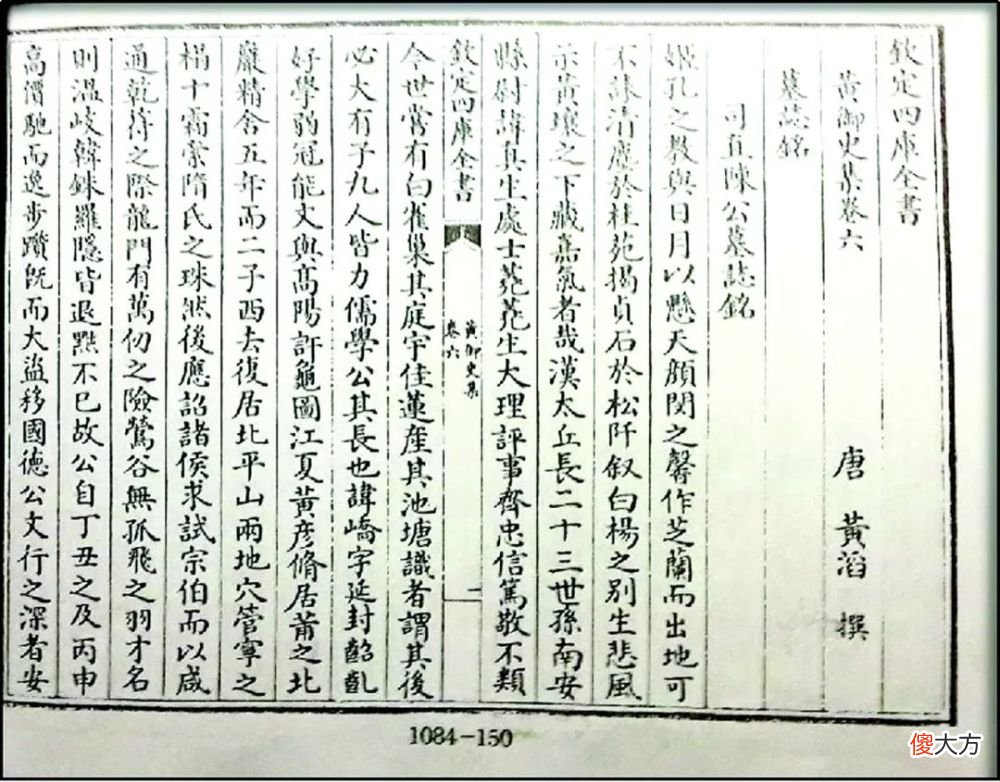 欽定四庫全書
黃御史集卷六
唐 黃滔 撰
墓誌銘
司直陳公墓誌銘
姬孔之教與日月以懸天顔閔之馨作芝蘭而出地可
不詠清塵於桂苑揭貞石於松阡叙白楊之别生悲風
示黃壤之下藏嘉氣者哉漢太丘長二十三世孫南安
縣尉諱真生處士蕘蕘生大理評事齊忠信篤敬不類
欽定四庫全書
黃御史集
卷六
二
今世嘗有白雀巢其庭宇佳蓮産其池塘識者謂其後
必大有子九人皆力儒學公其長也諱嶠字延封齠齓
好學弱冠能文與高陽許龜圖江夏黃彦脩居莆之北
巖精舍五年而二子西去復居北平山兩地穴管寧之
榻十霜索隋氏之珠然後應詔諸侯求試宗伯而以咸
通乾符之際龍門有萬仞之險鶯谷無孤飛之羽才名
則温岐韓銖羅隱皆退黜不已故公自丁丑之及丙申
高價馳而逸步躓旣而大盜移國德公文行之深者安
1084-150
傻大方